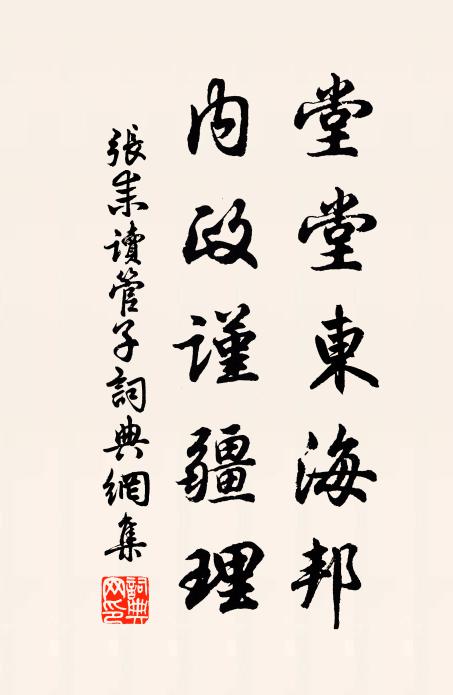 堂堂東海邦
内政謹疆理
張耒讀管子詞典網集
詞典網印